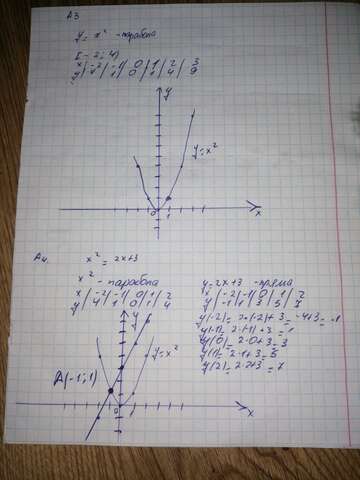 А3
y = x² - парабола
[-2; 4)
x | -2 | -1 | 0 | 1 | 2 | 3
y | 4 | 1 | 0 | 1 | 4 | 9
y
y = x²
0 1 x
А4. x² = 2x+3
x² - парабола
x | -2 | -1 | 0 | 1 | 2
y | 4 | 1 | 0 | 1 | 4
y
y = x²
A(-1; 1)
0 1 x
y = 2x+3 - пряма
x | -2 | -1 | 0 | 1 | 2
y | -1 | 1 | 3 | 5 | 7
y(-2) = 2·(-2)+3 = -4+3 = -1
y(-1) = 2·(-1)+3 = 1
y(0) = 2·0+3 = 3
y(1) = 2·1+3 = 5
y(2) = 2·2+3 = 7